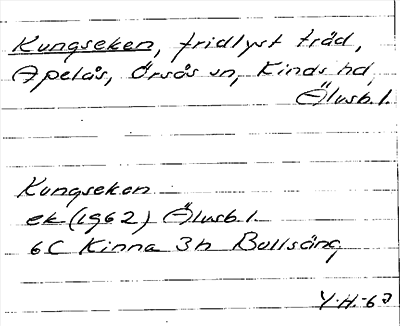 Kungseken, fridlyst träd,
Apelås, Örsås sn, Kinds hd,
Älvsb. l.
Kungseken
ek (1962) Älvsb. l.
6C Kinna 3h Bullsäng
Y.H.-62